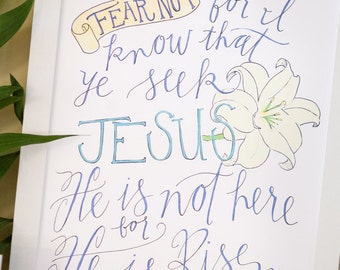 FEAR NOT for I
know that
ye seek
JESUS
He is not here
for
He is Risen